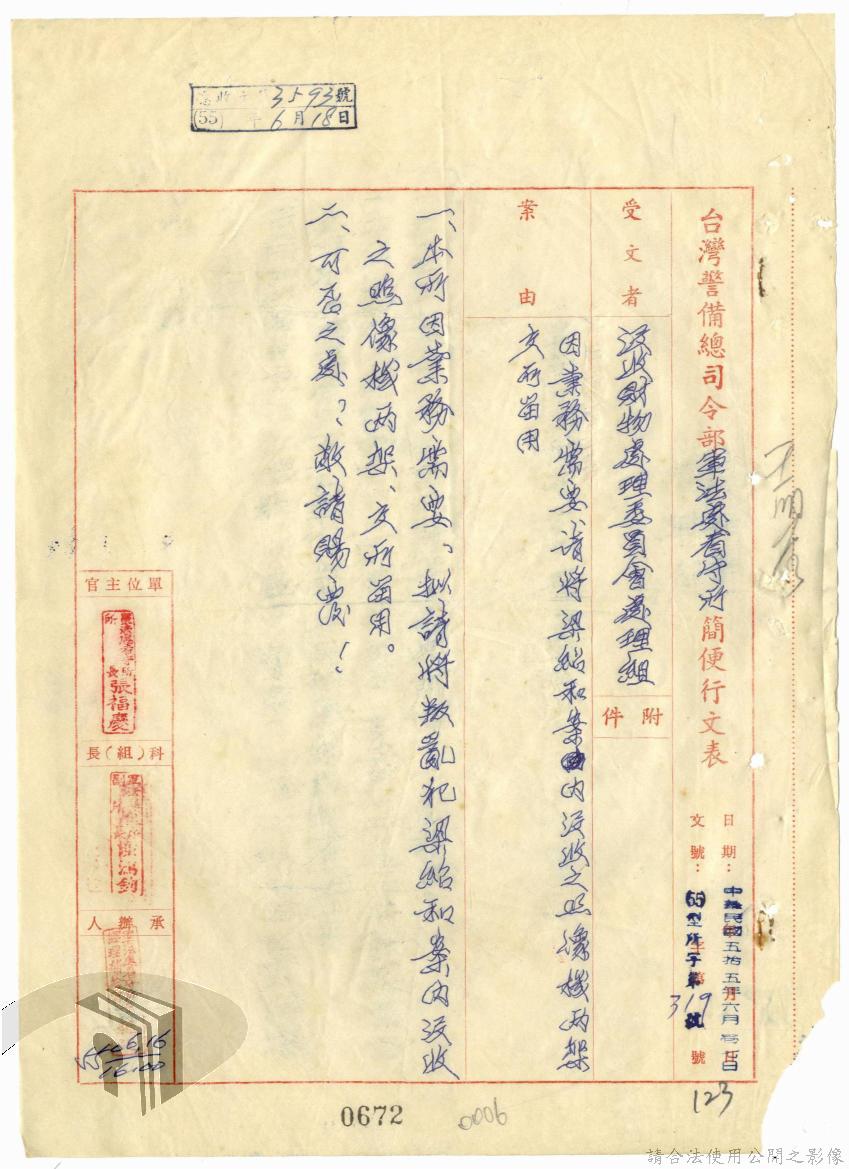 3593號
(55)年6月18日
台灣警備總司令部軍法處看守所簡便行文表
日期：中華民國五拾五年六月 日
文號：(55)型所字第319號
受文者
沒收財物處理委員會處理組
附件
案由
因業務需要、請將梁紹和案內沒收之照像機兩架
交所留用
一、本所因業務需要、拟請將叛亂犯梁紹和案內沒收
之照像機兩架、交所留用。
二、可否之處？敬請賜覆！
單位主官
所長張福慶
科（組）長
承辦人
55.6.16
16:00
123
0672
0006
請合法使用公開之影像